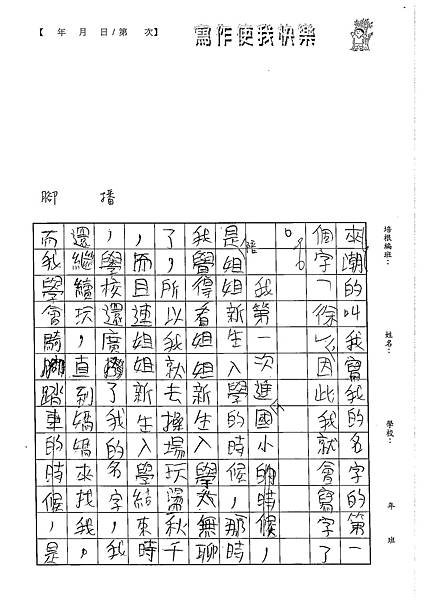 【 年 月 日/第 次】
寫作使我快樂
培根編班:
姓名:
學校:
年 班
播
腳
來潮的叫我寫我的名字的第一
個字「徐」,因此我就會寫字了
。
我第一次進國小的時候,
是陪姐姐新生入學的時候,那時,
我覺得看姐姐新生入學太無聊
了,所以我就去操場玩盪秋千
,而且連姐姐新生入學結束時
,學校還廣播了我的名字,我
還繼續玩,直到媽媽來找我。
而我學會騎腳踏車的時候,是